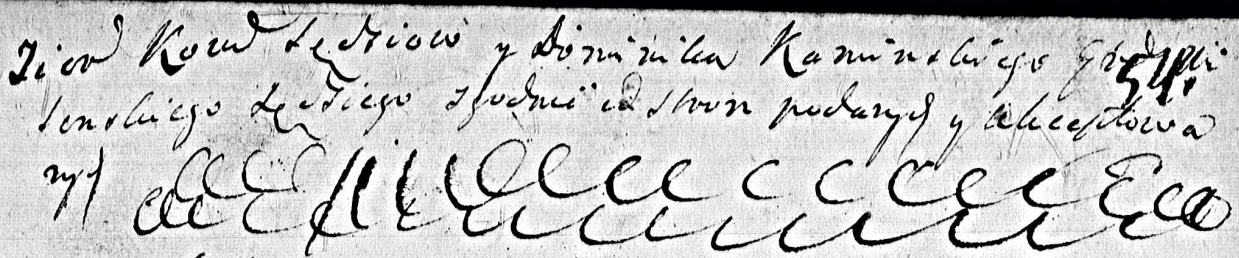 Sędziow y Dominika Kaminskiego
tenskiego Sędziego zgodnie od stron podanych y akceptowa
nych